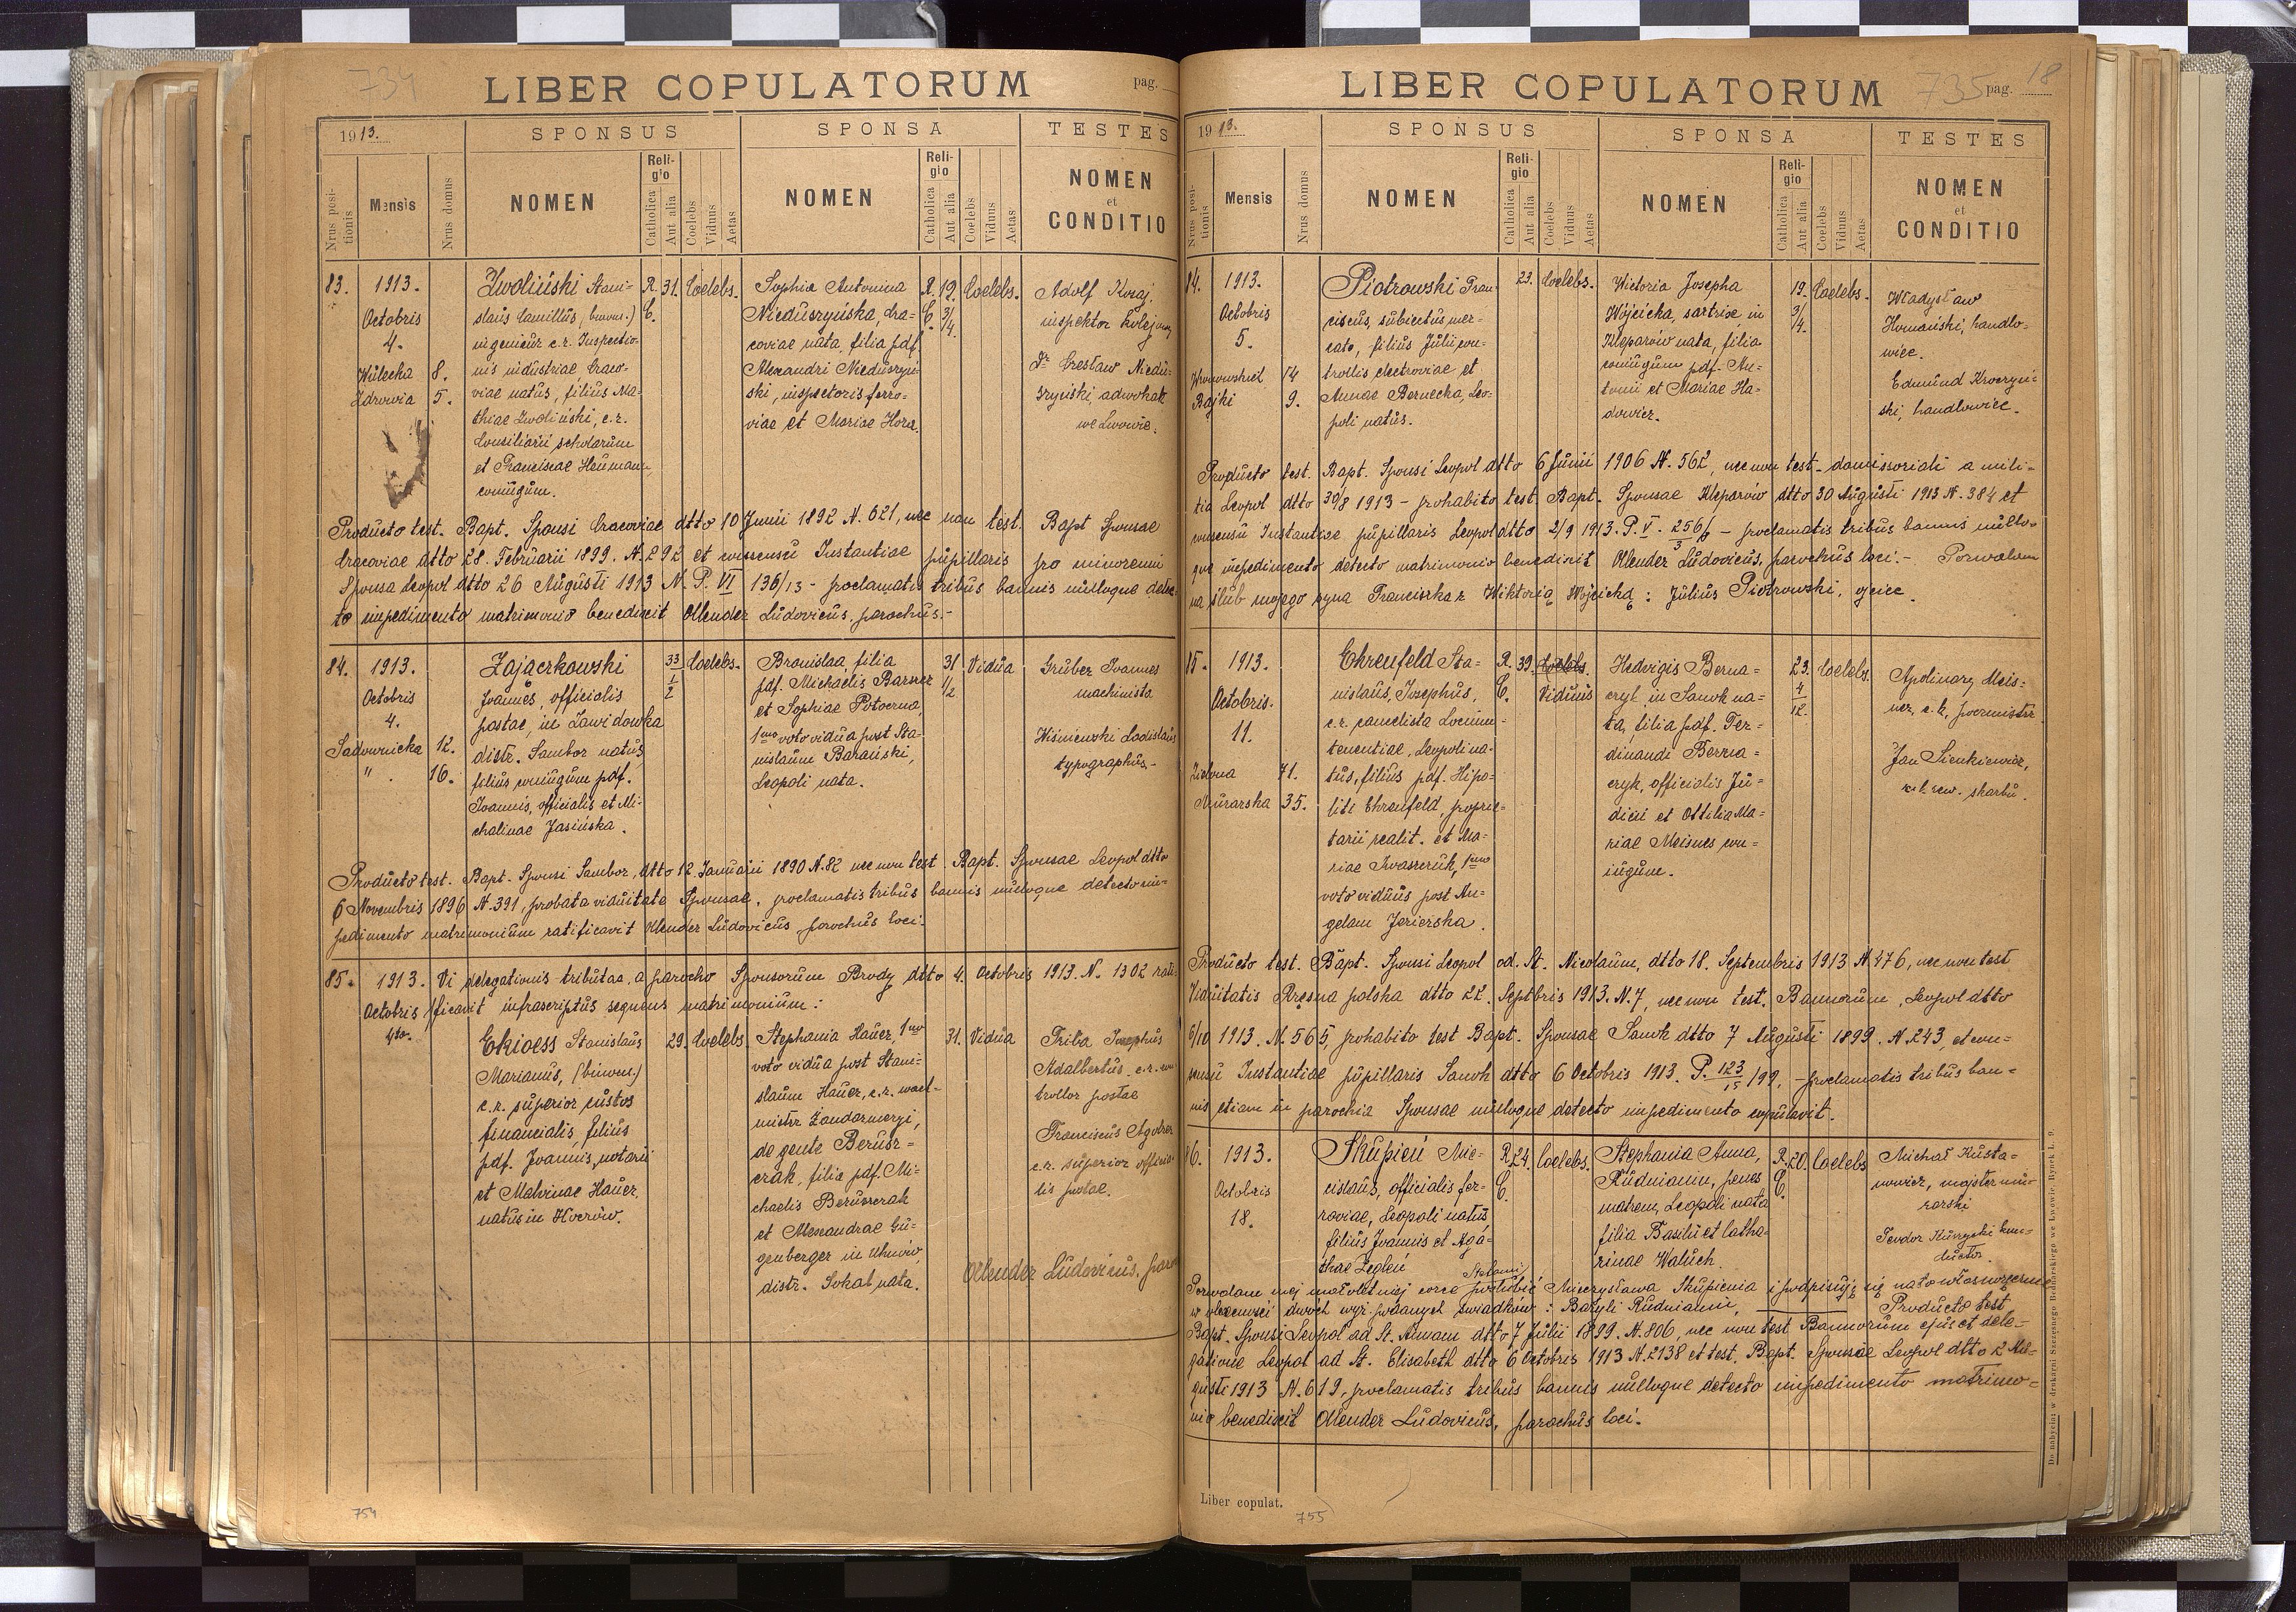 734
LIBER COPULATORUM
pag.
1913.
SPONSUS
SPONSA
TESTES
Nrus positionis
Mensis
Nrus domus
NOMEN
Religio
Catholica
Aut alia
Coelebs
Viduus
Aetas
NOMEN
Religio
Catholica
Aut alia
Coelebs
Viduus
Aetas
NOMEN
et
CONDITIO
83.
1913.
Octobris
4.
Wulecka 8.
Zdrowia 5.
Zwoliński Stani=
slaus Camillus, (binom.)
ingenieur c.r. Inspectio-
nis industriae Craco-
viae natus, filius Ma-
thiae Zwoliński, c.r.
Consiliarii scholarum
et Franciscae Heumann,
coniugum.
R. C.
31.
Coelebs.
Sophia Antonina
Nieduszyńska, Cra=
coviae nata, filia pdf.
Alexandri Nieduszyń-
ski, inspectoris ferro-
viae et Mariae Hora.
R. C.
19. 3/4.
Coelebs.
Adolf Koraj,
inspektor kolejowy
Dr Czesław Niedu=
szyński, adwokat
we Lwowie.
Producto test. Bapt. Sponsi Cracoviae dtto 10 Junii 1892 N. 621, nec non test. Bapt Sponsae
Cracoviae dtto 28. Februarii 1899. N. 292 et consensu Instantiae pupillaris pro minorenni
Sponsa Leopol dtto 26 Augusti 1913 N. P. VI 136/13 - proclamatis tribus bannis nulloque detec-
to impedimento matrimonio benedixit Ollender Ludovicus, parochus.-
84.
1913.
Octobris
4.
Sadownicka 12.
" . 16.
Zajączkowski
Joannes, officialis
postae, in Zawidowka
distr. Sambor natus,
filius coniugum pdf.
Joannis, officialis et Mi-
chalinae Jasińska.
33 1/2
Coelebs.
Bronislaa, filia
pdf. Michaelis Barner
et Sophiae Potoczna,
1mo voto vidua post Sta-
nislaum Barański,
Leopoli nata.
31 11/2
Vidua
Gruber Joannes
machinista
Wiśniewski Ladislaus
typographus.-
Producto test. Bapt. Sponsi Sambor, dtto 12 Januarii 1890 N. 82 nec non test. Bapt. Sponsae Leopol dtto
6 Novembris 1896 N. 391, probata viduitate Sponsae, proclamatis tribus bannis nulloque detecto im-
pedimento matrimonium ratificavit Ollender Ludovicus parochus loci.
85.
1913.
Octobris
4to.
Vi delegationis tributae, a parocho Sponsorum Brody dtto 4. Octobris 1913. N. 1302 rati-
ficavit infrascriptus sequens matrimonium:
Ekioess Stanislaus
Marianus, (binom.)
c.r. superior custos
financialis, filius
pdf. Joannis, notarii
et Malvinae Hauer,
natus in Hoczów.
29.
Coelebs.
Stephania Hauer, 1mo
voto vidua post Stani-
slaum Hauer, c.r. wach-
mistrz Żandarmeryi,
de gente Berusz=
czak, filia pdf. Mi-
chaelis Beruszczak
et Alexandrae Gu-
genberger in Uhnów,
distr. Sokal nata.
31.
Vidua
Friba Josephus
Adalbertus, c.r. con-
trollor postae
Franciscus
c.r. superior officia-
lis postae.
Ollender Ludovicus, paro
754
LIBER COPULATORUM
735 pag. 18
1913.
SPONSUS
SPONSA
TESTES
Nrus positionis
Mensis
Nrus domus
NOMEN
Religio
Catholica
Aut alia
Coelebs
Viduus
Aetas
NOMEN
Religio
Catholica
Aut alia
Coelebs
Viduus
Aetas
NOMEN
et
CONDITIO
84.
1913.
Octobris
5.
14
Bajki 9.
Piotrowski Fran-
ciscus, subiectus mer-
cato, filius Julii, con-
trollis electroviae et
Annae Bernecka, Leo-
poli natus.
23.
Coelebs.
Victoria Josepha
Wójcicka, sartrix, in
Kleparów nata, filia
coniugum pdf. An-
tonii et Mariae Ha-
dowicz.
19. 3/4.
Coelebs.
Władysław
Homański, handlo-
wiec.
Edmund Kroczyń-
ski, handlowiec.
Producto test. Bapt. Sponsi Leopol dtto 6 Junii 1906 N. 562, nec non test. domissoriali a mili-
tia Leopol dtto 30/8 1913 - prohabito test. Bapt. Sponsae Kleparów dtto 30 Augusti 1913 N. 384 et
consensu Instantiae pupillaris Leopol dtto 2/9 1913. P. V. 256/3 - proclamatis tribus bannis nullo-
que impedimento detecto matrimonio benedixit Ollender Ludovicus, parochus loci.- Pozwalam
na ślub mojego syna Franciszka z Wiktorią Wójcicką: Julius Piotrowski, ojciec.
85.
1913.
Octobris.
11.
Zielona 71.
Murarska 35.
Ehrenfeld Sta-
nislaus, Josephus,
c.r. cancelista Locum-
tenentiae, Leopoli na-
tus, filius pdf. Hipo-
liti Ehrenfeld, proprie-
tarii realit. et Ma-
riae Iwaszczuk, 1mo
voto viduus post An-
gelam Jezierska.
R. C.
39.
Coelebs.
Viduus
Hedvigis Berna-
czyk, in Sanok na-
ta, filia pdf. Fer-
dinandi Berna-
czyk, officialis Ju-
dicii et Ottilia Ma-
riae Meisnes con-
iugum.
23. 4/12.
Coelebs.
Apolinary Meis-
ner, c.k. poczmistrz
Jan Sienkiewicz,
c.k. rew. skarbu.
Producto test. Bapt. Sponsi Leopol ad. St. Nicolaum, dtto 18. Septembris 1913 N 476, nec non test
Viduitatis Rzęsna polska dtto 22. Septbris 1913. N. 7, nec non test. Bannorum, Leopol dtto
6/10 1913. N. 565, prohabito test Bapt. Sponsae Sanok dtto 7 Augusti 1899. N. 243, et con-
sensu Instantiae pupillaris Sanok dtto 6 Octobris 1913. P. 123/15 /99, - proclamatis tribus ban-
nis etiam in parochia Sponsae nulloque detecto impedimento copulavit.
86.
1913.
Octobris
18.
Skupień Mie-
cislaus, officialis fer-
roviae, Leopoli natus
filius Joannis et Aga-
thae Żegleń
R. C.
24.
Coelebs.
Stephania Anna,
Rudnianin, penes
matrem, Leopoli nata
filia Basilii et Catha-
rinae Waluch.
R. C.
20.
Coelebs
Michał Kusta-
nowicz, majster mu-
rarski
Teodor Kurzycki kon-
duktor.
Pozwalam mej małoletniej córce Stefanii poślubić Mieczysława Skupienia i podpisuję się na to własnoręcznie
w obecności dwóch wyż podanych świadków: Bazyli Rudnianin, Producto test
Bapt. Sponsi Leopol ad St. Annam dtto 7 Julii 1899. N. 806, nec non test Bannorum ejus et dele-
gatione Leopol ad St. Elisabeth dtto 6 Octobris 1913 N. 2138 et test. Bapt. Sponsae Leopol dtto 2 Au-
gusti 1913 N. 619, proclamatis tribus bannis nulloque detecto impedimento matrimo-
nio benedixit Ollender Ludovicus, parochus loci.
Liber copulat.
755
Do nabycia w drukarni Szczęsnego Bednarskiego we Lwowie, Rynek l. 9.